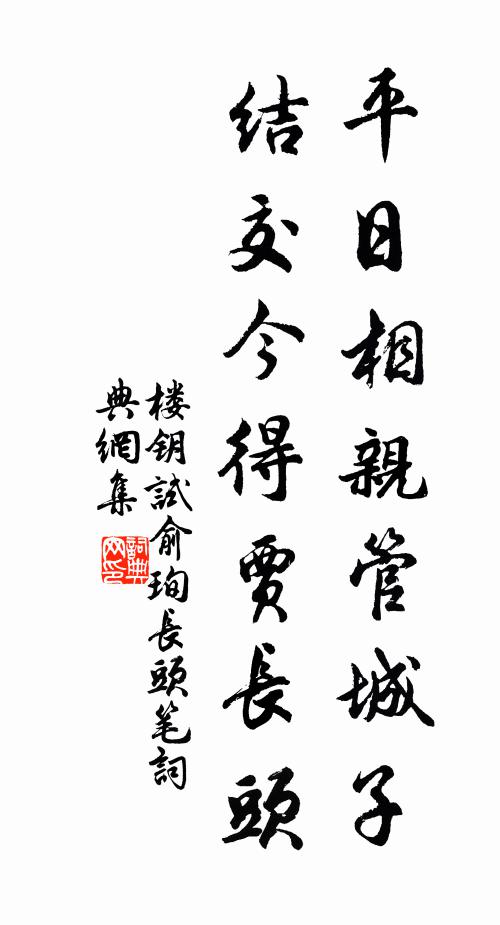 平日相親管城子
結交今得賈長頭
楼钥試俞珣長頭笔詞
典網集
詞典网印